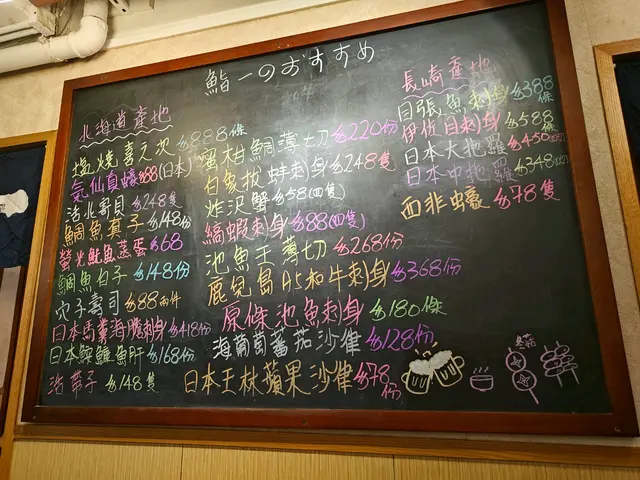 鮨一のおすすめ
北海道產地
塩燒喜之次 $888條
気仙良蠔$88(日本)
活北寄貝 $248隻
鯛魚真子 $148份
螢光魷魚蒸蛋 $68
鯛魚白子 $148份
穴子壽司 $88兩件
日本馬糞海膽刺身 $418份
日本鮟鱇魚肝 $168份
活帶子 $148隻
蜜柑鯛薄切 $220份
白象拔蚌刺身 $248隻
炸沢蟹 $58(四隻)
縞蝦刺身 $88(四隻)
池魚王薄切 $268份
鹿兒島A5和牛刺身 $368份
原條池魚刺身 $180條
海葡萄蕃茄沙律 $128份
日本王林蘋果沙律 $78份
長崎產地
目張魚刺身 $388條
伊佐目刺身 $588條
日本大拖羅 $450
日本中拖羅 $348
西非蠔 $78隻